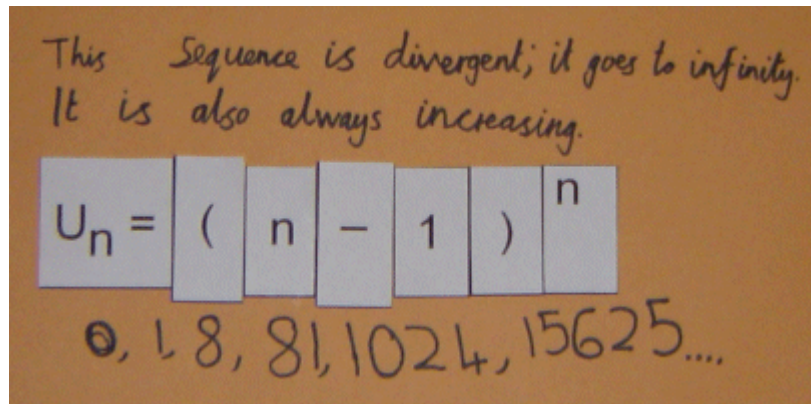 This Sequence is divergent; it goes to infinity.
It is also always increasing.
Uₙ = ( n − 1 )ⁿ
0, 1, 8, 81, 1024, 15625....